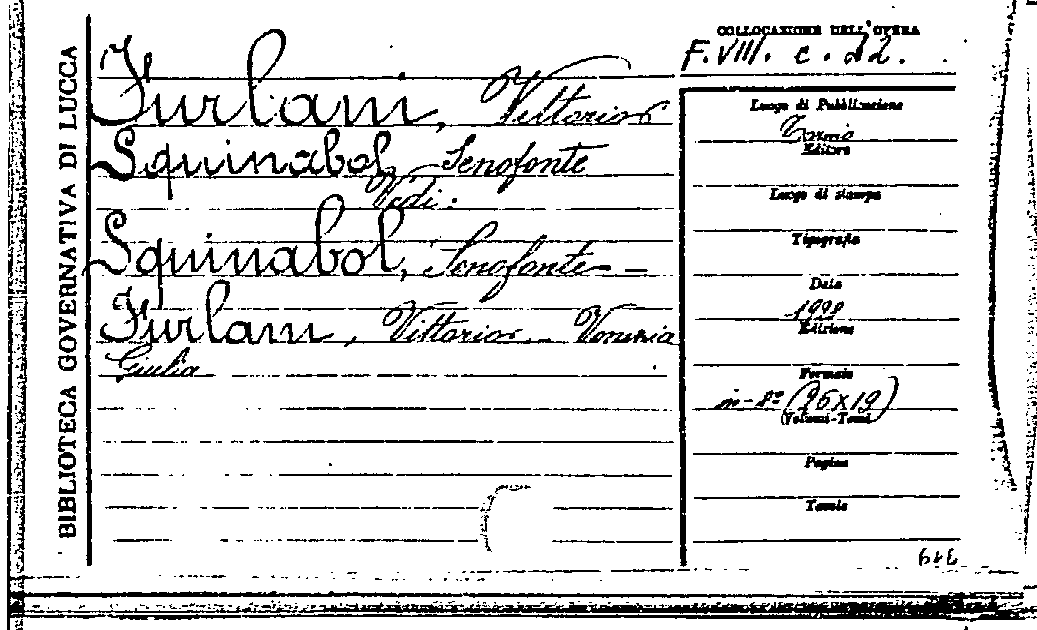 BIBLIOTECA GOVERNATIVA DI LUCCA
COLLOCAZIONE DELL'OPERA
F. VIII. c. 12.
Furlani, Vittorio
Squinabol, Senofonte
Vedi:
Squinabol, Senofonte —
Furlani, Vittorio — Venezia
Giulia
Luogo di Pubblicazione
Torino
Editore
Luogo di stampa
Tipografia
Data
1928
Edizione
Formato
in-8º (26x19)
(Volumi-Tomi)
Pagine
Tavole